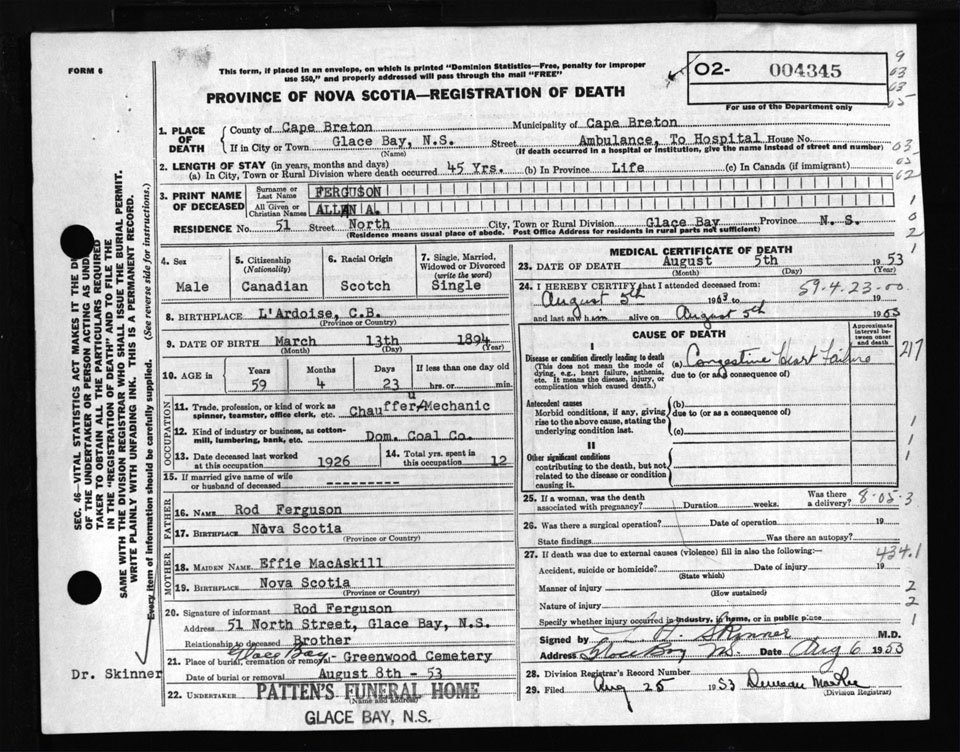 FORM 6
This form, if placed in an envelope, on which is printed "Dominion Statistics—Free, penalty for improper
use $50," and properly addressed will pass through the mail "FREE"
PROVINCE OF NOVA SCOTIA—REGISTRATION OF DEATH
O2- 004345
For use of the Department only
9
03
03
05
1. PLACE OF DEATH
County of Cape Breton Municipality of Cape Breton
If in City or Town Glace Bay, N.S. Street Ambulance, To Hospital House No.
(Name) (If death occurred in a hospital or institution, give the name instead of street and number)
03
2. LENGTH OF STAY (in years, months and days)
(a) In City, Town or Rural Division where death occurred 45 Yrs. (b) In Province Life (c) In Canada (if immigrant)
02
02
3. PRINT NAME OF DECEASED
Surname or Last Name FERGUSON
All Given or Christian Names ALLAN A.
1
RESIDENCE No. 51 Street North City, Town or Rural Division Glace Bay Province N. S.
(Residence means usual place of abode. Post Office Address for residents in rural parts not sufficient)
0
2
1
4. Sex
Male
5. Citizenship
(Nationality)
Canadian
6. Racial Origin
Scotch
7. Single, Married,
Widowed or Divorced
(write the word)
Single
8. BIRTHPLACE L'Ardoise, C.B.
(Province or Country)
9. DATE OF BIRTH March 13th 1894
(Month) (Day) (Year)
10. AGE in
Years Months Days If less than one day old
59 4 23 hrs. or min.
OCCUPATION
11. Trade, profession, or kind of work as
spinner, teamster, office clerk, etc. Chauffer, Mechanic
u
12. Kind of industry or business, as cotton-
mill, lumbering, bank, etc. Dom. Coal Co.
13. Date deceased last worked
at this occupation 1926
14. Total yrs. spent in
this occupation 12
15. If married give name of wife
or husband of deceased ----------
FATHER
16. NAME Rod Ferguson
17. BIRTHPLACE Nova Scotia
(Province or Country)
MOTHER
18. MAIDEN NAME Effie MacAskill
19. BIRTHPLACE Nova Scotia
(Province or Country)
20. Signature of informant Rod Ferguson
Address 51 North Street, Glace Bay, N.S.
Relationship to deceased Brother
21. Place of burial, cremation or removal Glace Bay - Greenwood Cemetery
Date of burial or removal August 8th - 53
22. UNDERTAKER PATTEN'S FUNERAL HOME
(Name and address)
GLACE BAY, N.S.
MEDICAL CERTIFICATE OF DEATH
23. DATE OF DEATH August 5th 1953
(Month) (Day) (Year)
24. I HEREBY CERTIFY that I attended deceased from: 59-4-23-00
August 5th 1953 to 19
and last saw him alive on August 5th 1953
CAUSE OF DEATH
Approximate
interval be-
tween onset
and death
I
Disease or condition directly leading to death
(This does not mean the mode of
dying, e.g., heart failure, asthenia,
etc. It means the disease, injury, or
complication which caused death.)
(a) Congestive Heart Failure
due to (or as a consequence of)
217
Antecedent causes
Morbid conditions, if any, giving
rise to the above cause, stating the
underlying condition last.
(b)
due to (or as a consequence of)
(c)
1
1
II
Other significant conditions
contributing to the death, but not
related to the disease or condition
causing it.
1
25. If a woman, was the death
associated with pregnancy? Duration weeks. Was there
a delivery?
8-05-3
26. Was there a surgical operation? Date of operation 19
State findings Was there an autopsy?
27. If death was due to external causes (violence) fill in also the following:—
434.1
Accident, suicide or homicide? Date of injury 19
(State which)
Manner of injury
(How sustained)
2
Nature of injury
2
Specify whether injury occurred in industry, in home, or in public place
1
Signed by Skinner M.D.
Address Glace Bay NS. Date Aug 6 1953
28. Division Registrar's Record Number
29. Filed Aug 25 1953
(Division Registrar)
SEC. 46—VITAL STATISTICS ACT MAKES IT THE DU
OF THE UNDERTAKER OR PERSON ACTING AS UNDE
TAKER TO OBTAIN ALL THE PARTICULARS REQUIRED
IN THE "REGISTRATION OF DEATH" AND TO FILE THE
SAME WITH THE DIVISION REGISTRAR WHO SHALL ISSUE THE BURIAL PERMIT.
WRITE PLAINLY WITH UNFADING INK. THIS IS A PERMANENT RECORD.
Every item of information should be carefully supplied. (See reverse side for instructions.)
Dr. Skinner